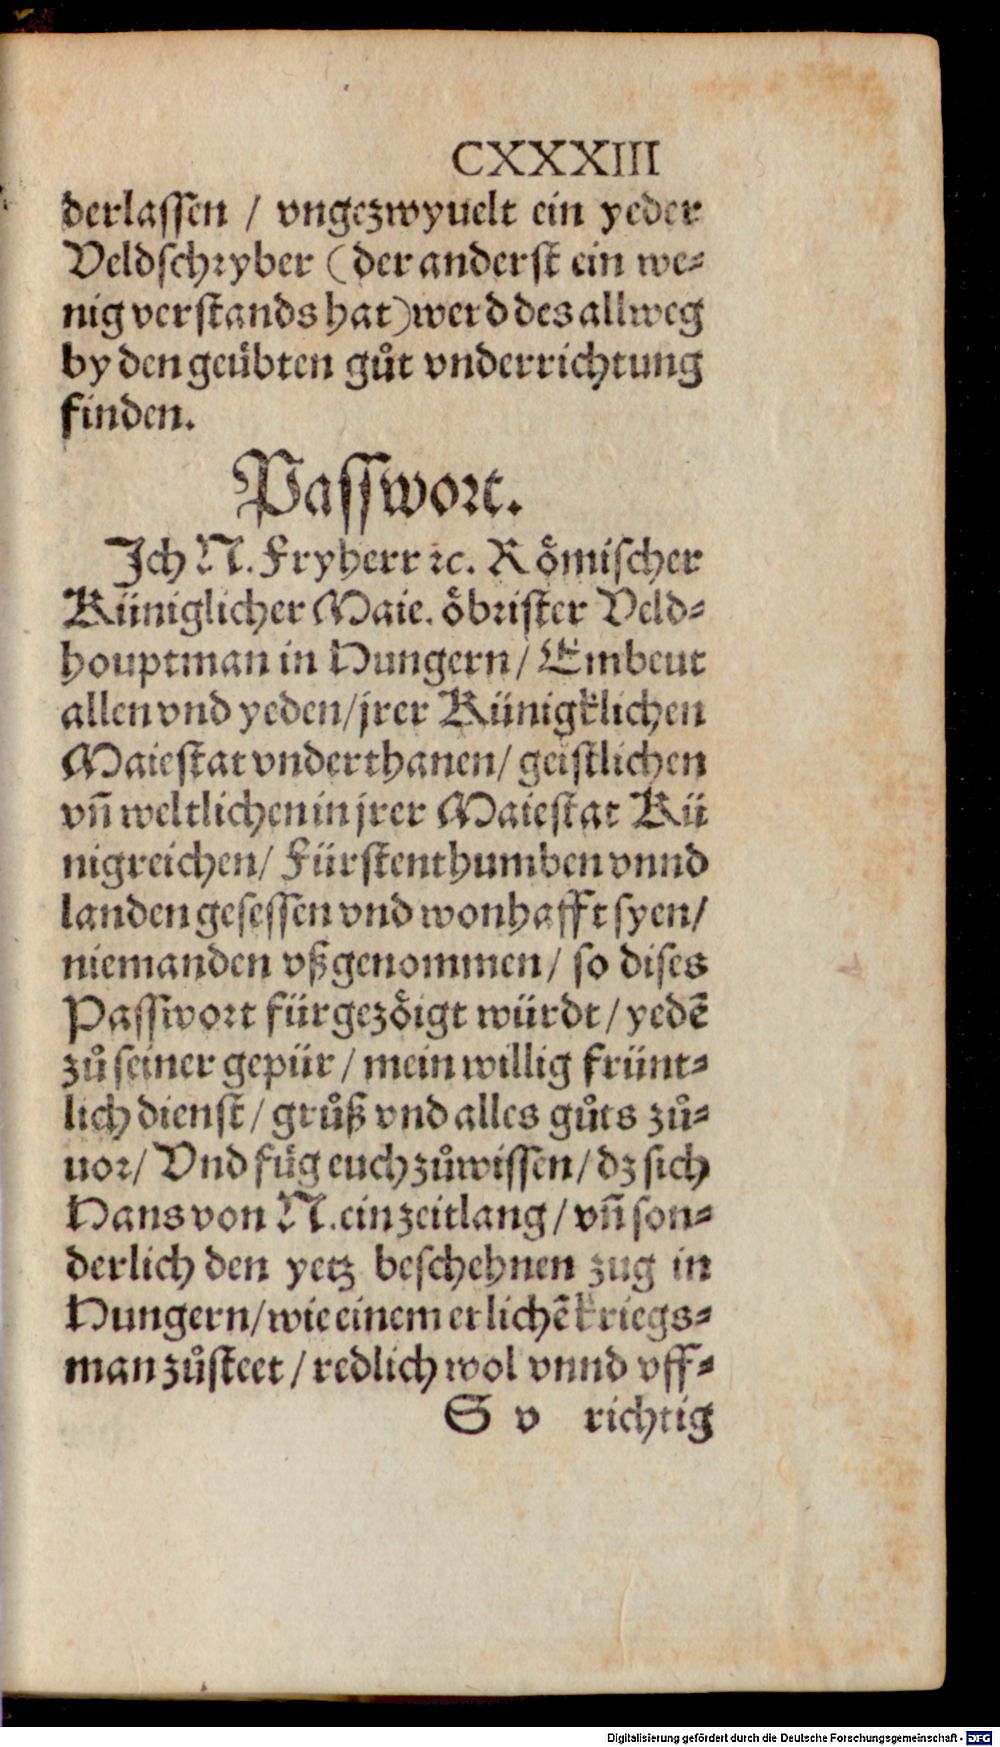 CXXXIII
derlassen / vngezwyuelt ein yeder
Veldschryber (der anderst ein we-
nig verstands hat) werd des allweg
by den geübten gůt vnderrichtung
finden.
Passwort.
Ich N. Fryherr ꝛc. Römischer
Küniglicher Maie. öbrister Veld-
houptman in Hungern / Embeut
allen vnd yeden / jrer Künigklichen
Maiestat vnderthanen / geistlichen
vñ weltlichen in jrer Maiestat Kü
nigreichen / Fürstenthumben vnnd
landen gesessen vnd wonhafft syen /
niemanden vßgenommen / so dises
Passwort fürgezöigt würdt / yedē
zů seiner gepür / mein willig frünt-
lich dienst / grůß vnd alles gůts zů-
uor / Vnd füg euch zůwissen / dz sich
Hans von N. ein zeitlang / vñ son-
derlich den yetz beschehnen zug in
Hungern / wie einem erlichē kriegs-
man zůsteet / redlich wol vnnd vff-
S v richtig
Digitalisierung gefördert durch die Deutsche Forschungsgemeinschaft - DFG